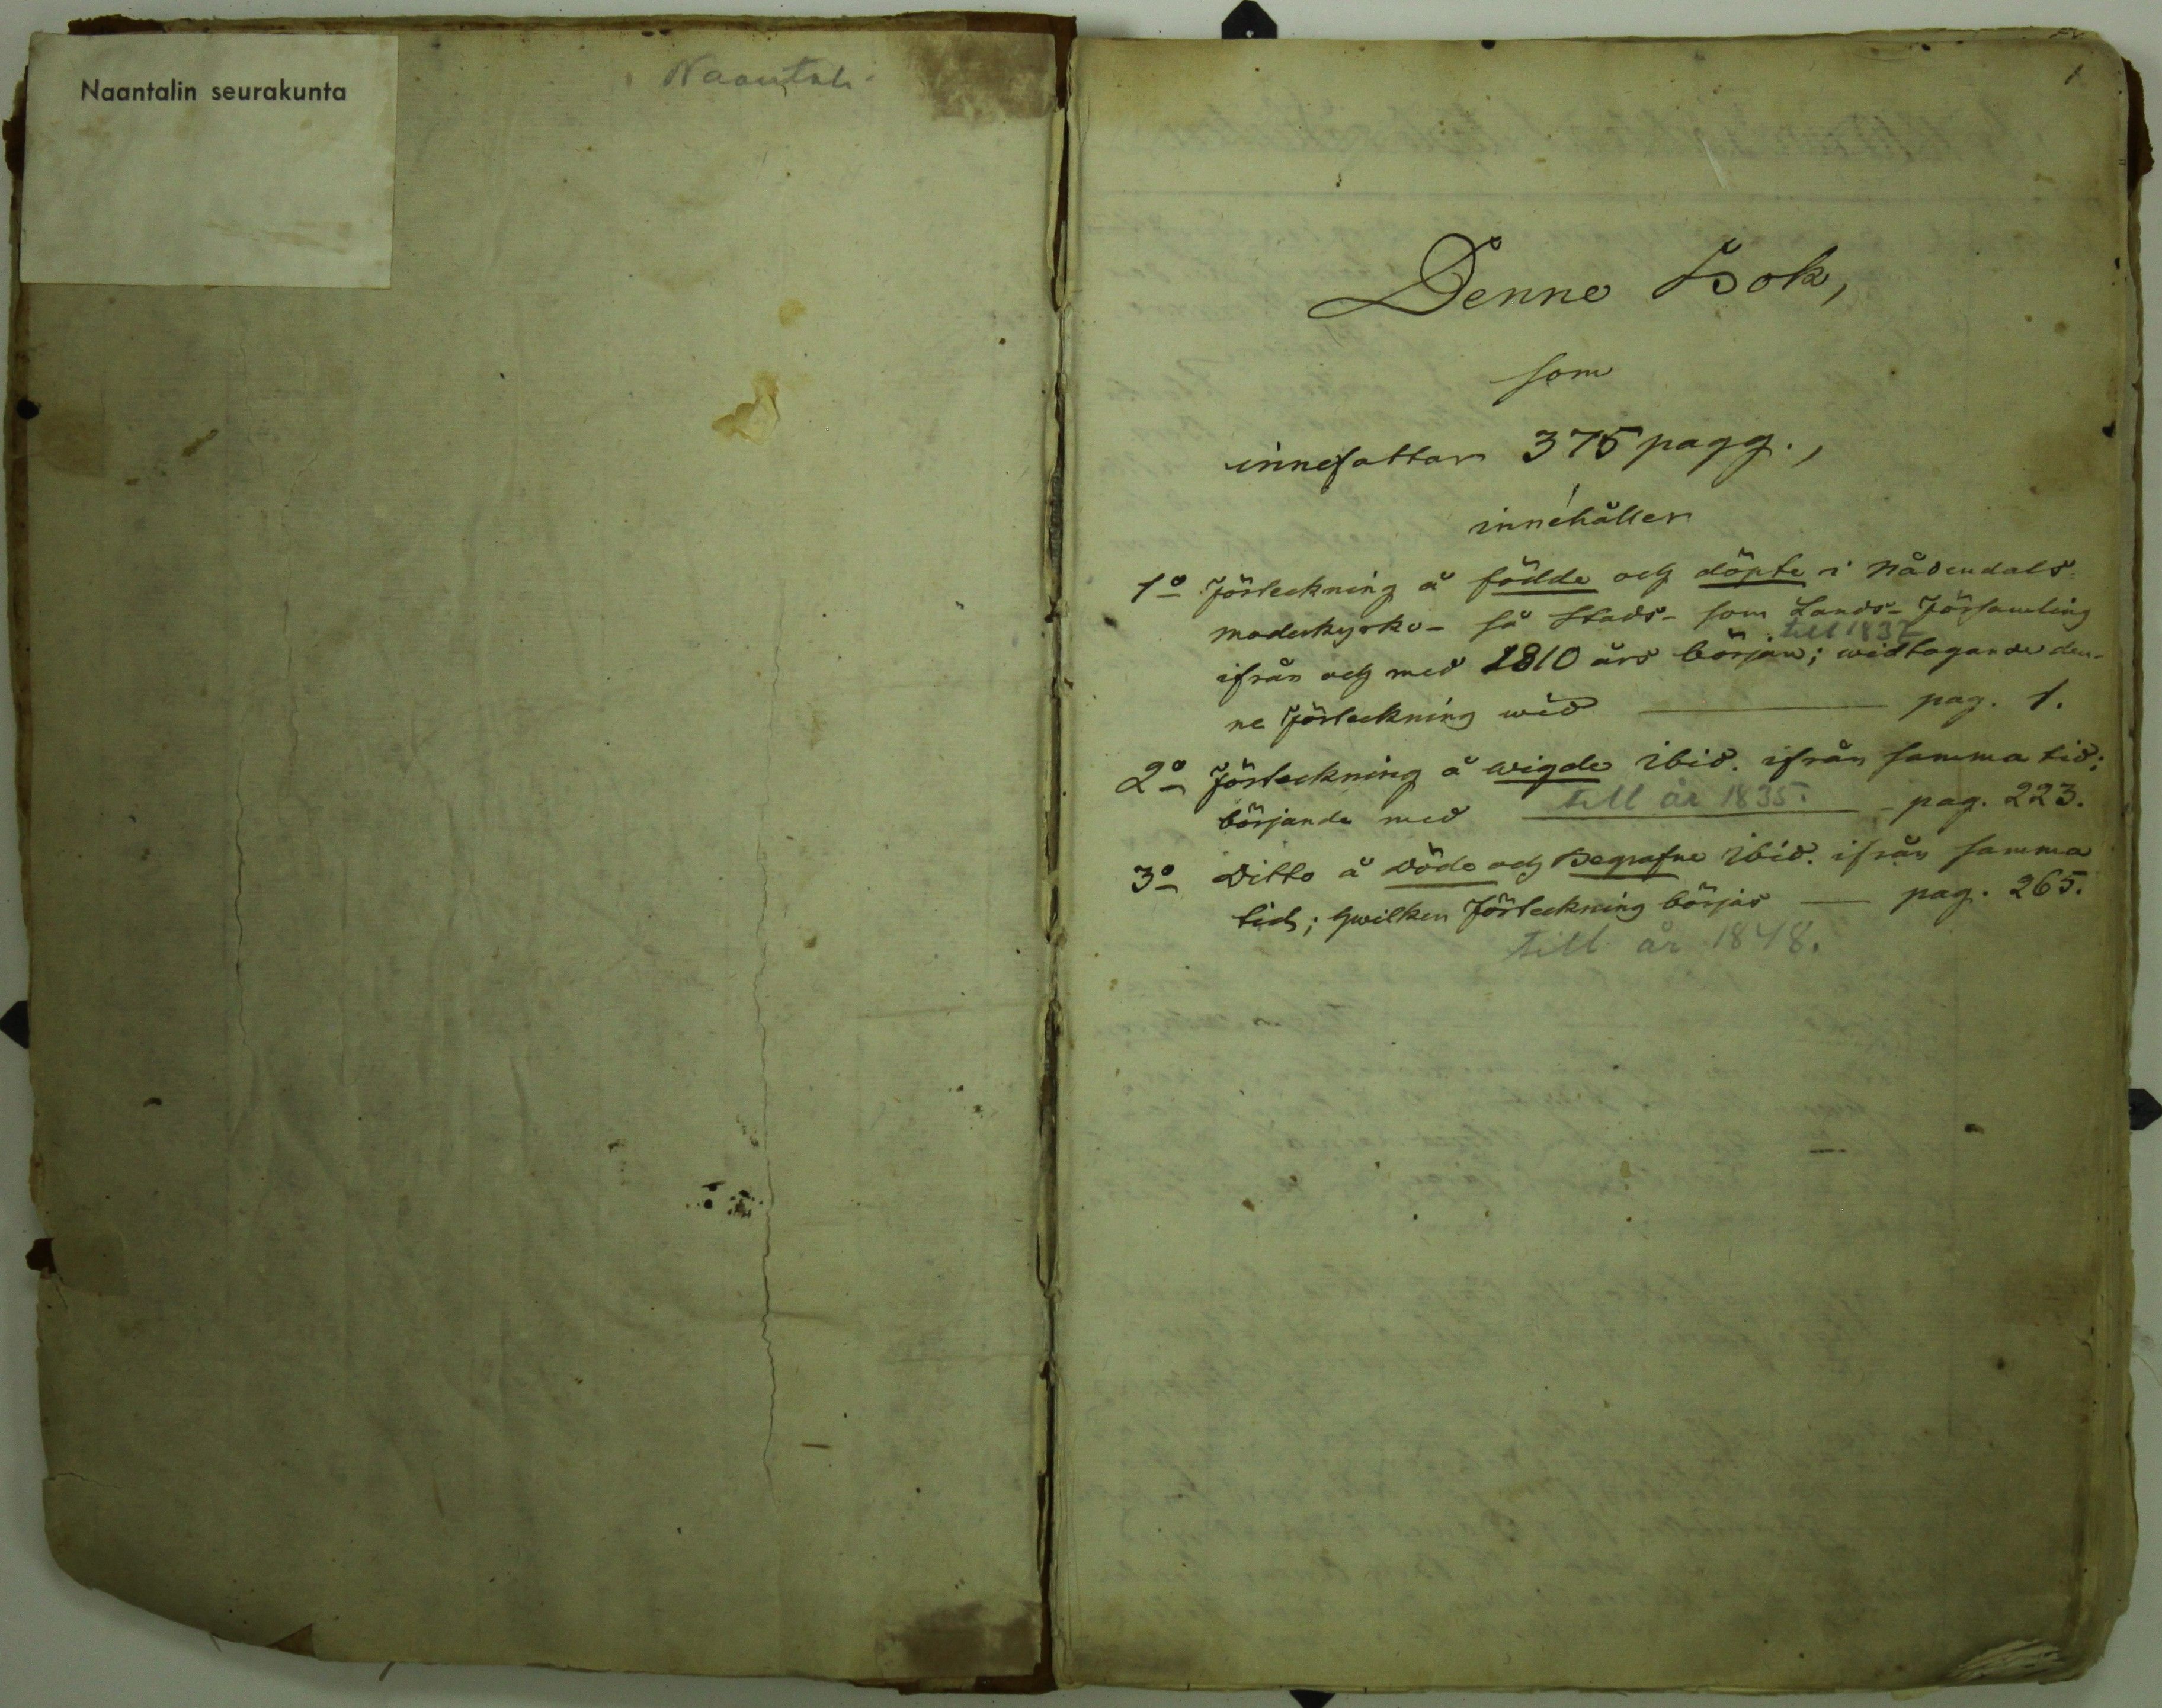 Naantalin seurakunta
Naantali
1
Denne Bok,
som
innefattar 375 pagg.,
innehåller
1o Förteckning å födde och döpte i Nådendals
moderkyrko- så Stads- som Lands- Församling
till 1837
ifrån och med 1810 års början; widtagande den-
ne Förteckning wid — pag. 1.
2o Förteckning å wigde ibid. ifrån samma tid;
började med till år 1835. — pag. 223.
3o Ditto å döde och Begrafne ibid. ifrån samma
tid; hwilken Förteckning börjas — pag. 265.
till år 1848.